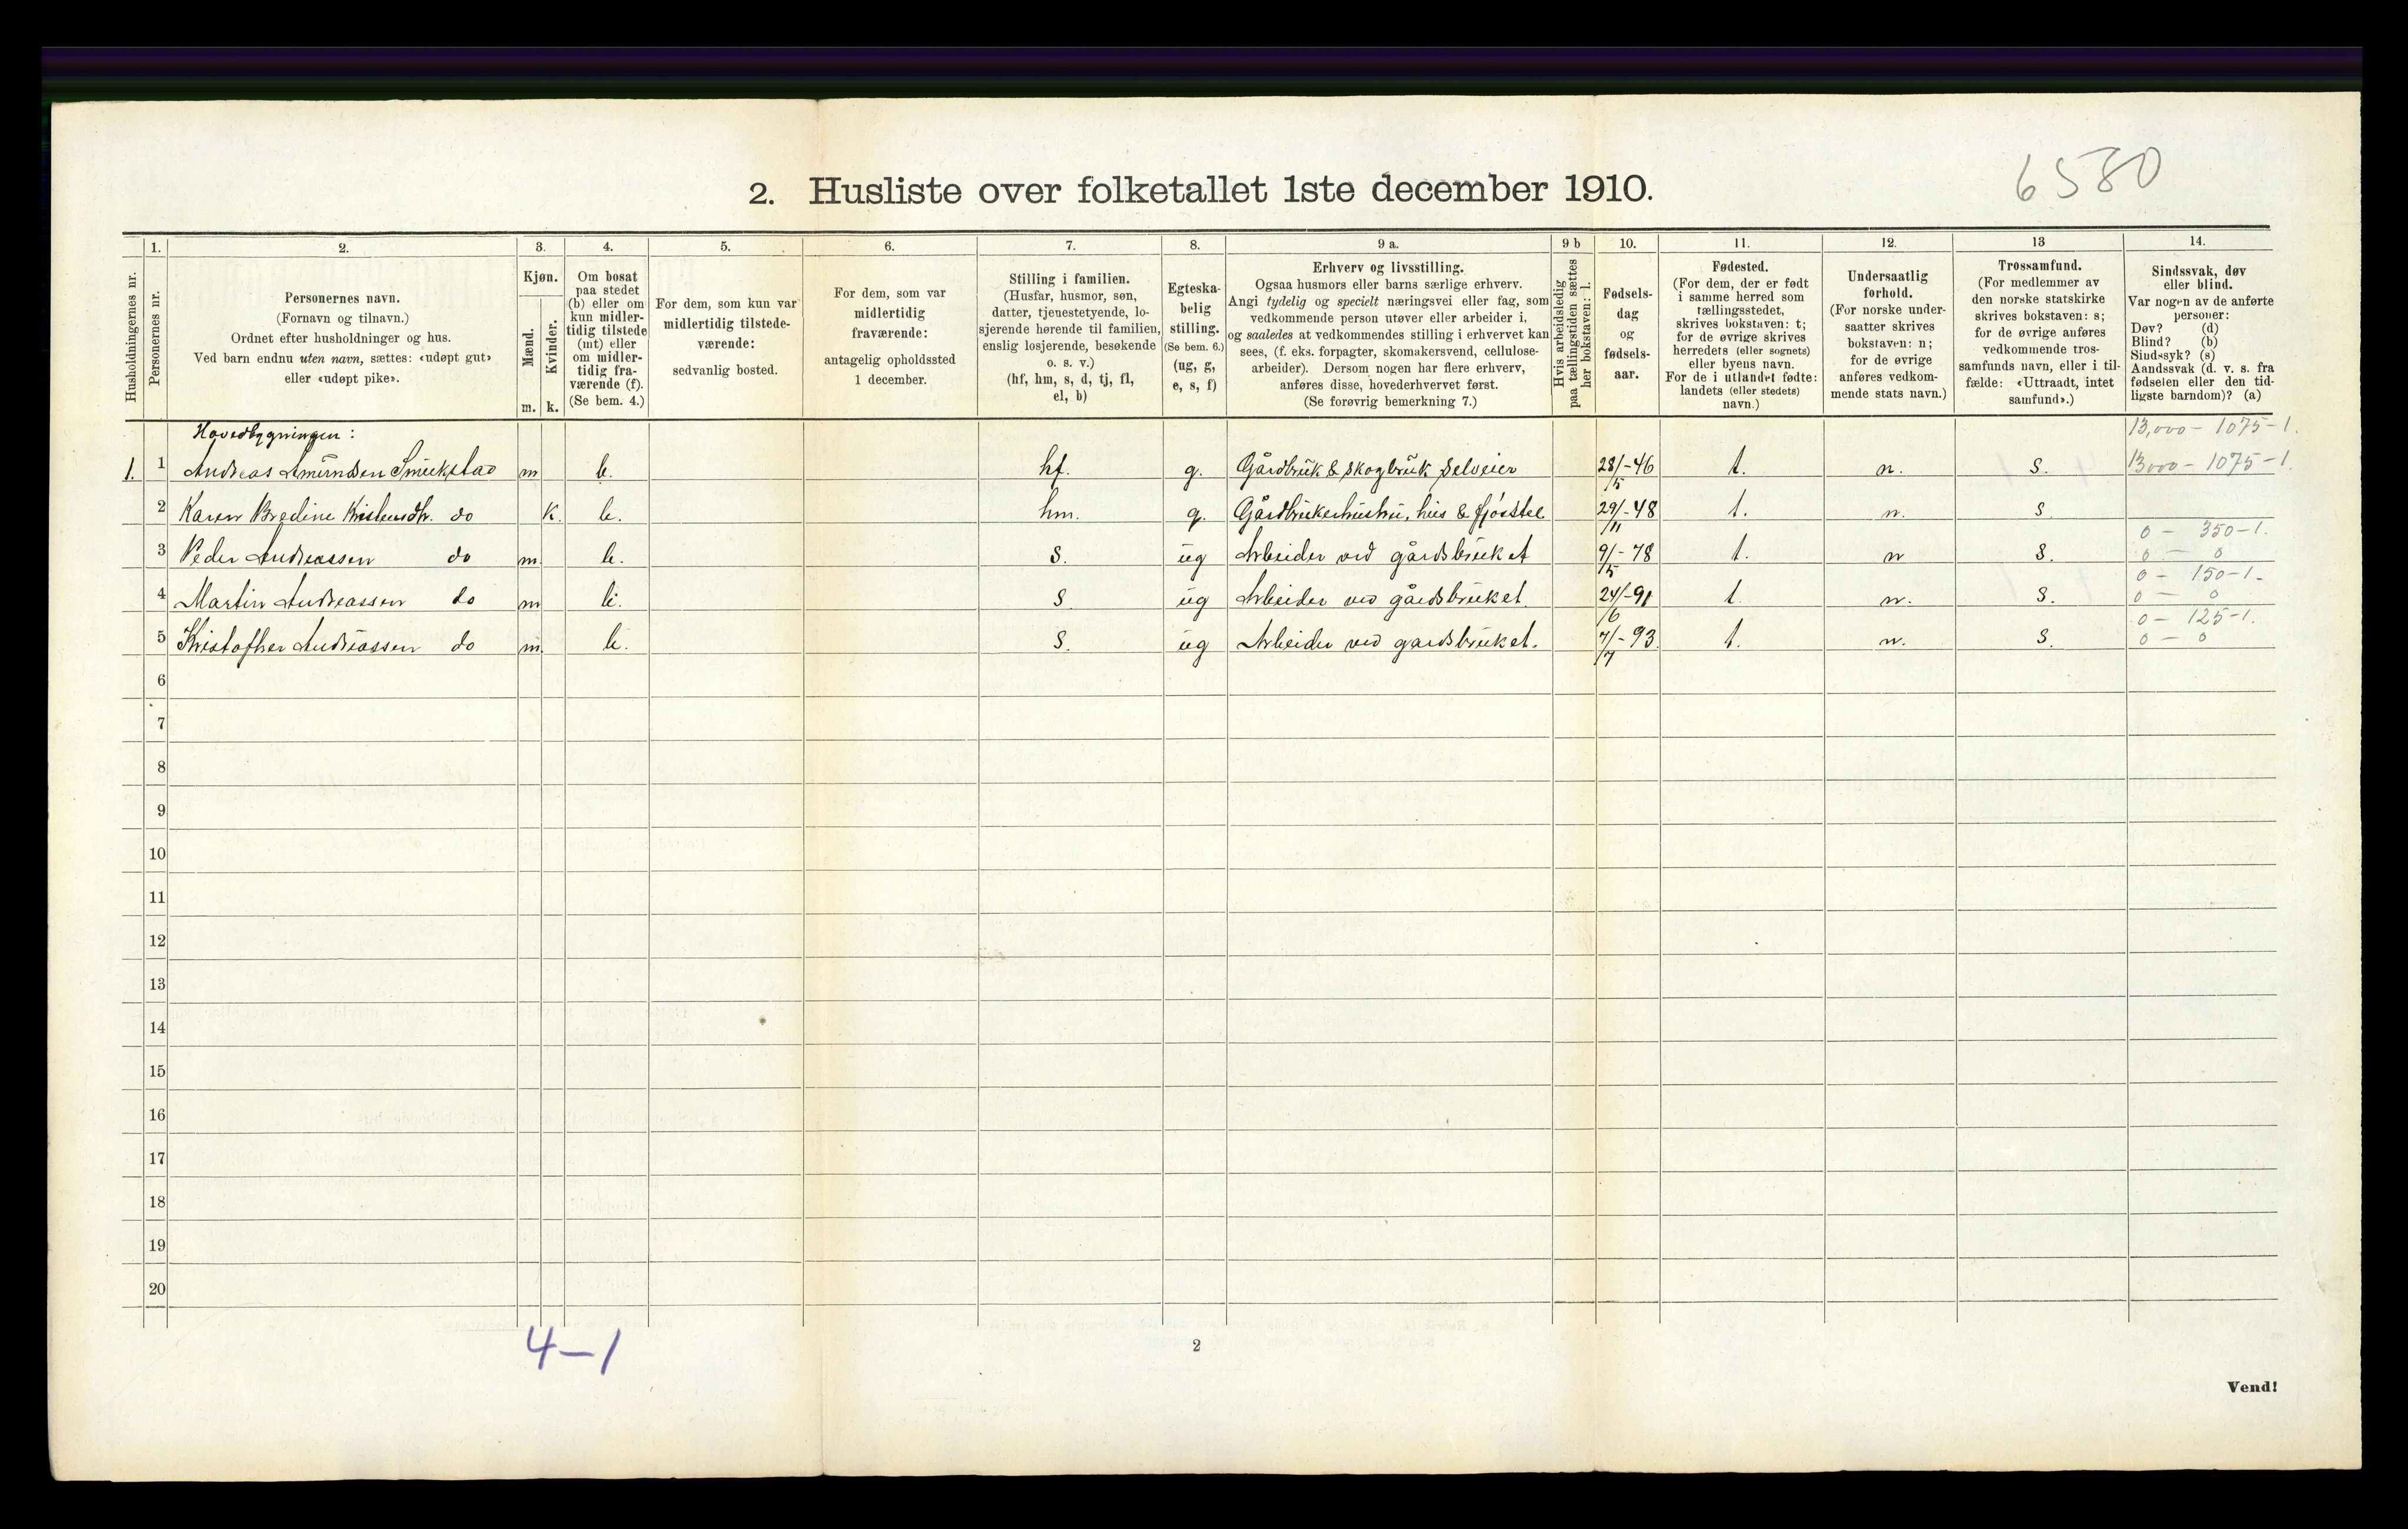 6580
2. Husliste over folketallet 1ste december 1910.
Husholdningernes nr.
1.
Personernes nr.
2.
Personernes navn.
(Fornavn og tilnavn.)
Ordnet efter husholdninger og hus.
Ved barn endnu uten navn, sættes: «udøpt gut»
eller «udøpt pike».
3.
Kjøn.
Mænd.
Kvinder.
m. k.
4.
Om bosat
paa stedet
(b) eller om
kun midler-
tidig tilstede
(mt) eller
om midler-
tidig fra-
værende (f).
(Se bem. 4.)
5.
For dem, som kun var
midlertidig tilstede-
værende:
sedvanlig bosted.
6.
For dem, som var
midlertidig
fraværende:
antagelig opholdssted
1 december.
7.
Stilling i familien.
(Husfar, husmor, søn,
datter, tjenestetyende, lo-
sjerende hørende til familien,
enslig losjerende, besøkende
o. s. v.)
(hf, hm, s, d, tj, fl,
el, b)
8.
Egteska-
belig
stilling.
(Se bem. 6.)
(ug, g,
e, s, f)
9 a.
Erhverv og livsstilling.
Ogsaa husmors eller barns særlige erhverv.
Angi tydelig og specielt næringsvei eller fag, som
vedkommende person utøver eller arbeider i,
og saaledes at vedkommendes stilling i erhvervet kan
sees, (f. eks. forpagter, skomakersvend, cellulose-
arbeider). Dersom nogen har flere erhverv,
anføres disse, hovederhvervet først.
(Se forøvrig bemerkning 7.)
9 b
Hvis arbeidsledig
paa tællingstiden sættes
her bokstaven: l.
10.
Fødsels-
dag
og
fødsels-
aar.
11.
Fødested.
(For dem, der er født
i samme herred som
tællingsstedet,
skrives bokstaven: t;
for de øvrige skrives
herredets (eller sognets)
eller byens navn.
For de i utlandet fødte:
landets (eller stedets)
navn.)
12.
Undersaatlig
forhold.
(For norske under-
saatter skrives
bokstaven: n;
for de øvrige
anføres vedkom-
mende stats navn.)
13
Trossamfund.
(For medlemmer av
den norske statskirke
skrives bokstaven: s;
for de øvrige anføres
vedkommende tros-
samfunds navn, eller i til-
fælde: «Uttraadt, intet
samfund».)
14.
Sindssvak, døv
eller blind.
Var nogen av de anførte
personer:
Døv? (d)
Blind? (b)
Sindssyk? (s)
Aandssvak (d. v. s. fra
fødselen eller den tid-
ligste barndom)? (a)
Hovedbygningen: 13,000 - 1075 - 1.
1. 1 Andreas Amundsen m b. hf. g. Gårdbruk & skogbruk selveier 28/5 -46 t. n. s. 13000 - 1075 - 1.
2 Karen Bredine do k. b. hm. g. Gårdbrukerhustru, hus & fjøsstel 29/11 -48 t. n. s
0 - 350 - 1.
3 Peder Andreassen do m. b. s. ug Arbeider ved gårdsbruket 9/5 -78 t. n s. 0 - 0
0 - 150 - 1.
4 Martin Andreassen do m b. s ug Arbeider ved gårdsbruket. 24/6 -91 t n. s. 0 - 0
0 - 125 - 1.
5 Kristofher Andreassen do m. b. s. ug Arbeider ved gardsbruket. 7/7 -93. t. n. s. 0 - 0
6
7
8
9
10
11
12
13
14
15
16
17
18
19
20
4-1
2
Vend!